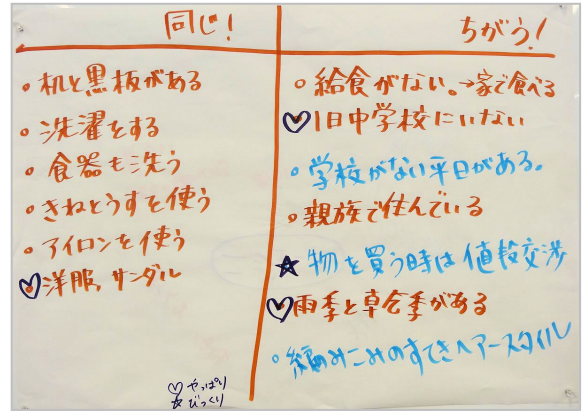 同じ!
・机と黒板がある
・洗濯をする
・食器も洗う
・きねとうすを使う
・アイロンを使う
♡洋服、サンダル
ちがう!
・給食がない。→家で食べる
♡1日中学校にいない
・学校がない平日がある。
・親族で住んでいる
★物を買う時は値段交渉
♡雨季と乾季がある
・編みこみのすてきヘアースタイル
♡やっぱり
☆びっくり